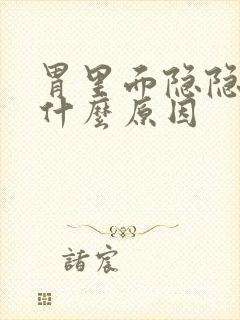 胃里而隐隐
什麼原因
諸宸